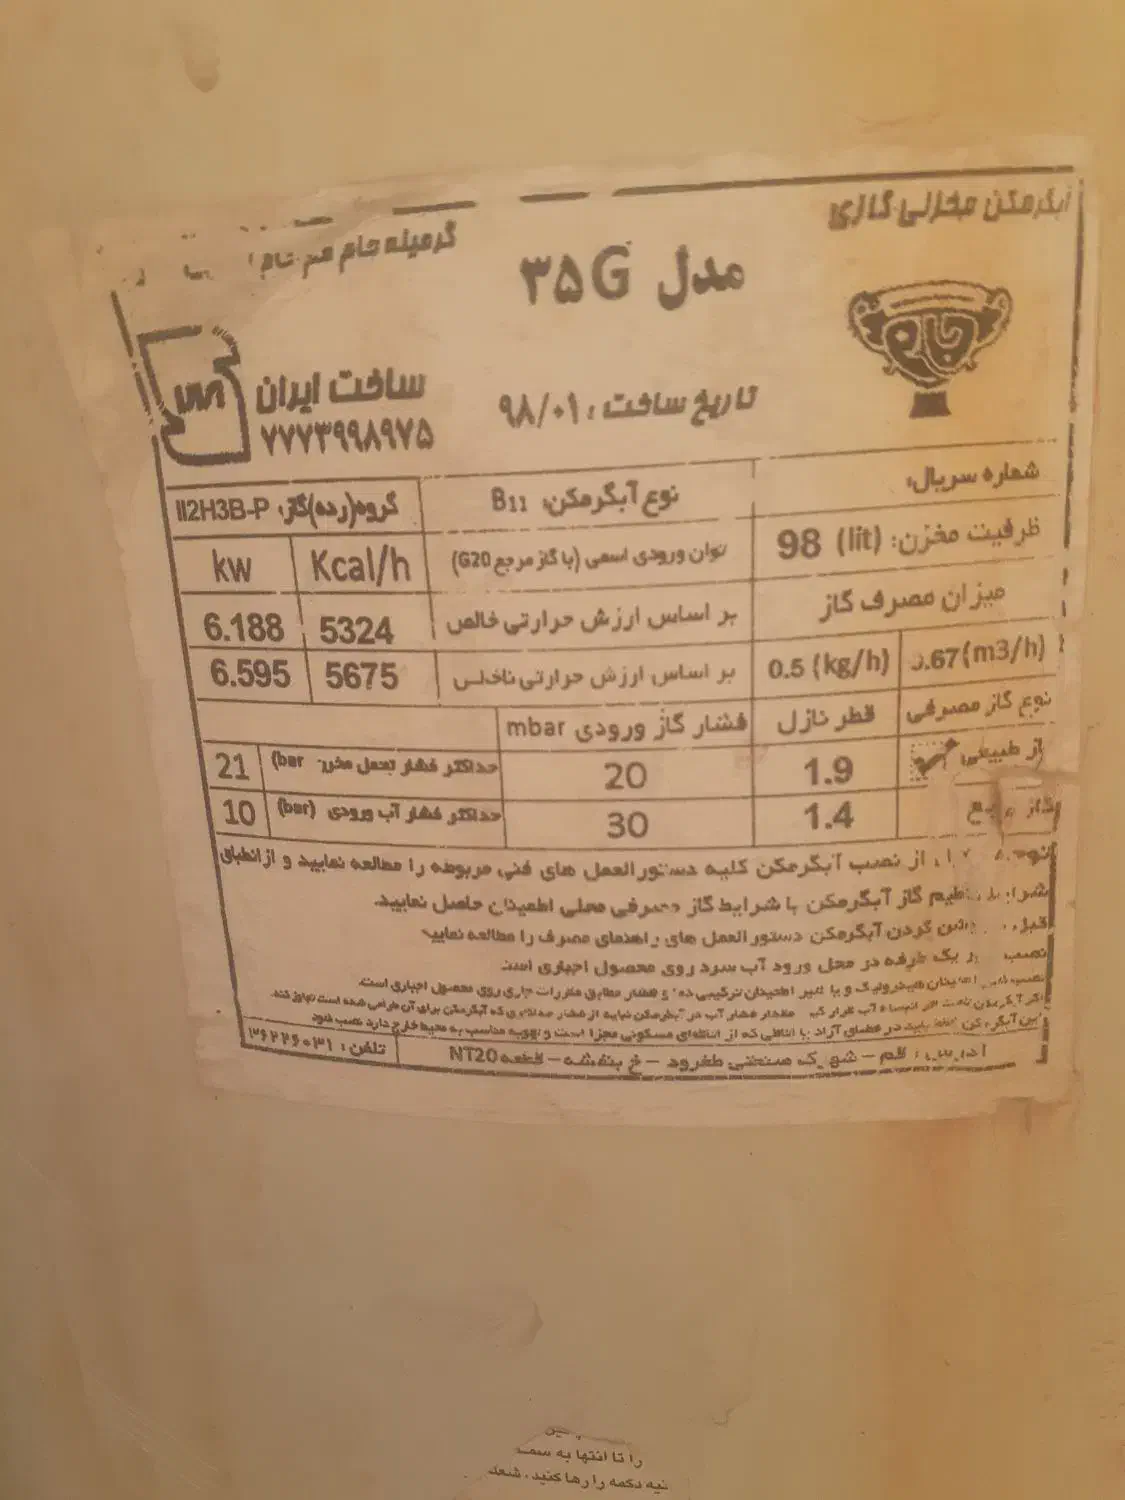 آبگرمکن مخزنی گازی
گرمینه جام جم
مدل ۳۵G
جام
ساخت ایران
۷۷۷۳۹۹۸۹۷۵
تاریخ ساخت: ۹۸/۰۱
شماره سریال:
نوع آبگرمکن: B11
گروه(رده)گاز: II2H3B-P
ظرفیت مخزن: (lit) 98
توان ورودی اسمی (با گاز مرجع G20)
Kcal/h
kw
میزان مصرف گاز
بر اساس ارزش حرارتی خالص
5324
6.188
.67(m3/h)
0.5 (kg/h)
بر اساس ارزش حرارتی ناخالص
5675
6.595
نوع گاز مصرفی
قطر نازل
فشار گاز ورودی mbar
طبیعی
1.9
20
حداکثر فشار تحمل مخزن (bar)
21
گاز
1.4
30
حداکثر فشار آب ورودی (bar)
10
از نصب آبگرمکن کلیه دستورالعمل های فنی مربوطه را مطالعه نمایید و از انطباق
گاز آبگرمکن با شرایط گاز مصرفی محلی اطمینان حاصل نمایید.
کردن آبگرمکن دستورالعمل های راهنمای مصرف را مطالعه نمایید
نصب یک طرفه در محل ورود آب سرد روی محصول اجباری است
نصب اطمینان هیدرولیک و یا شیر اطمینان ترکیبی دما و فشار مطابق مقررات جاری روی محصول اجباری است.
اگر آبگرمکن تحت اثر آب قرار مقدار فشار آب در آبگرمکن نباید از فشار حداکثری که آبگرمکن برای آن طراحی شده است تجاوز کند.
این باید در فضای آزاد یا اتاقی که از اتاقهای مسکونی مجزا است و تهویه مناسب به محیط خارج دارد نصب شود
آدرس: قم – شهرک صنعتی طغرود – خ بنفشه – قطعه NT20
تلفن: ۳۶۲۲۶۰۳۱
را تا انتها به سمت
نیه دکمه را رها کنید، شعله